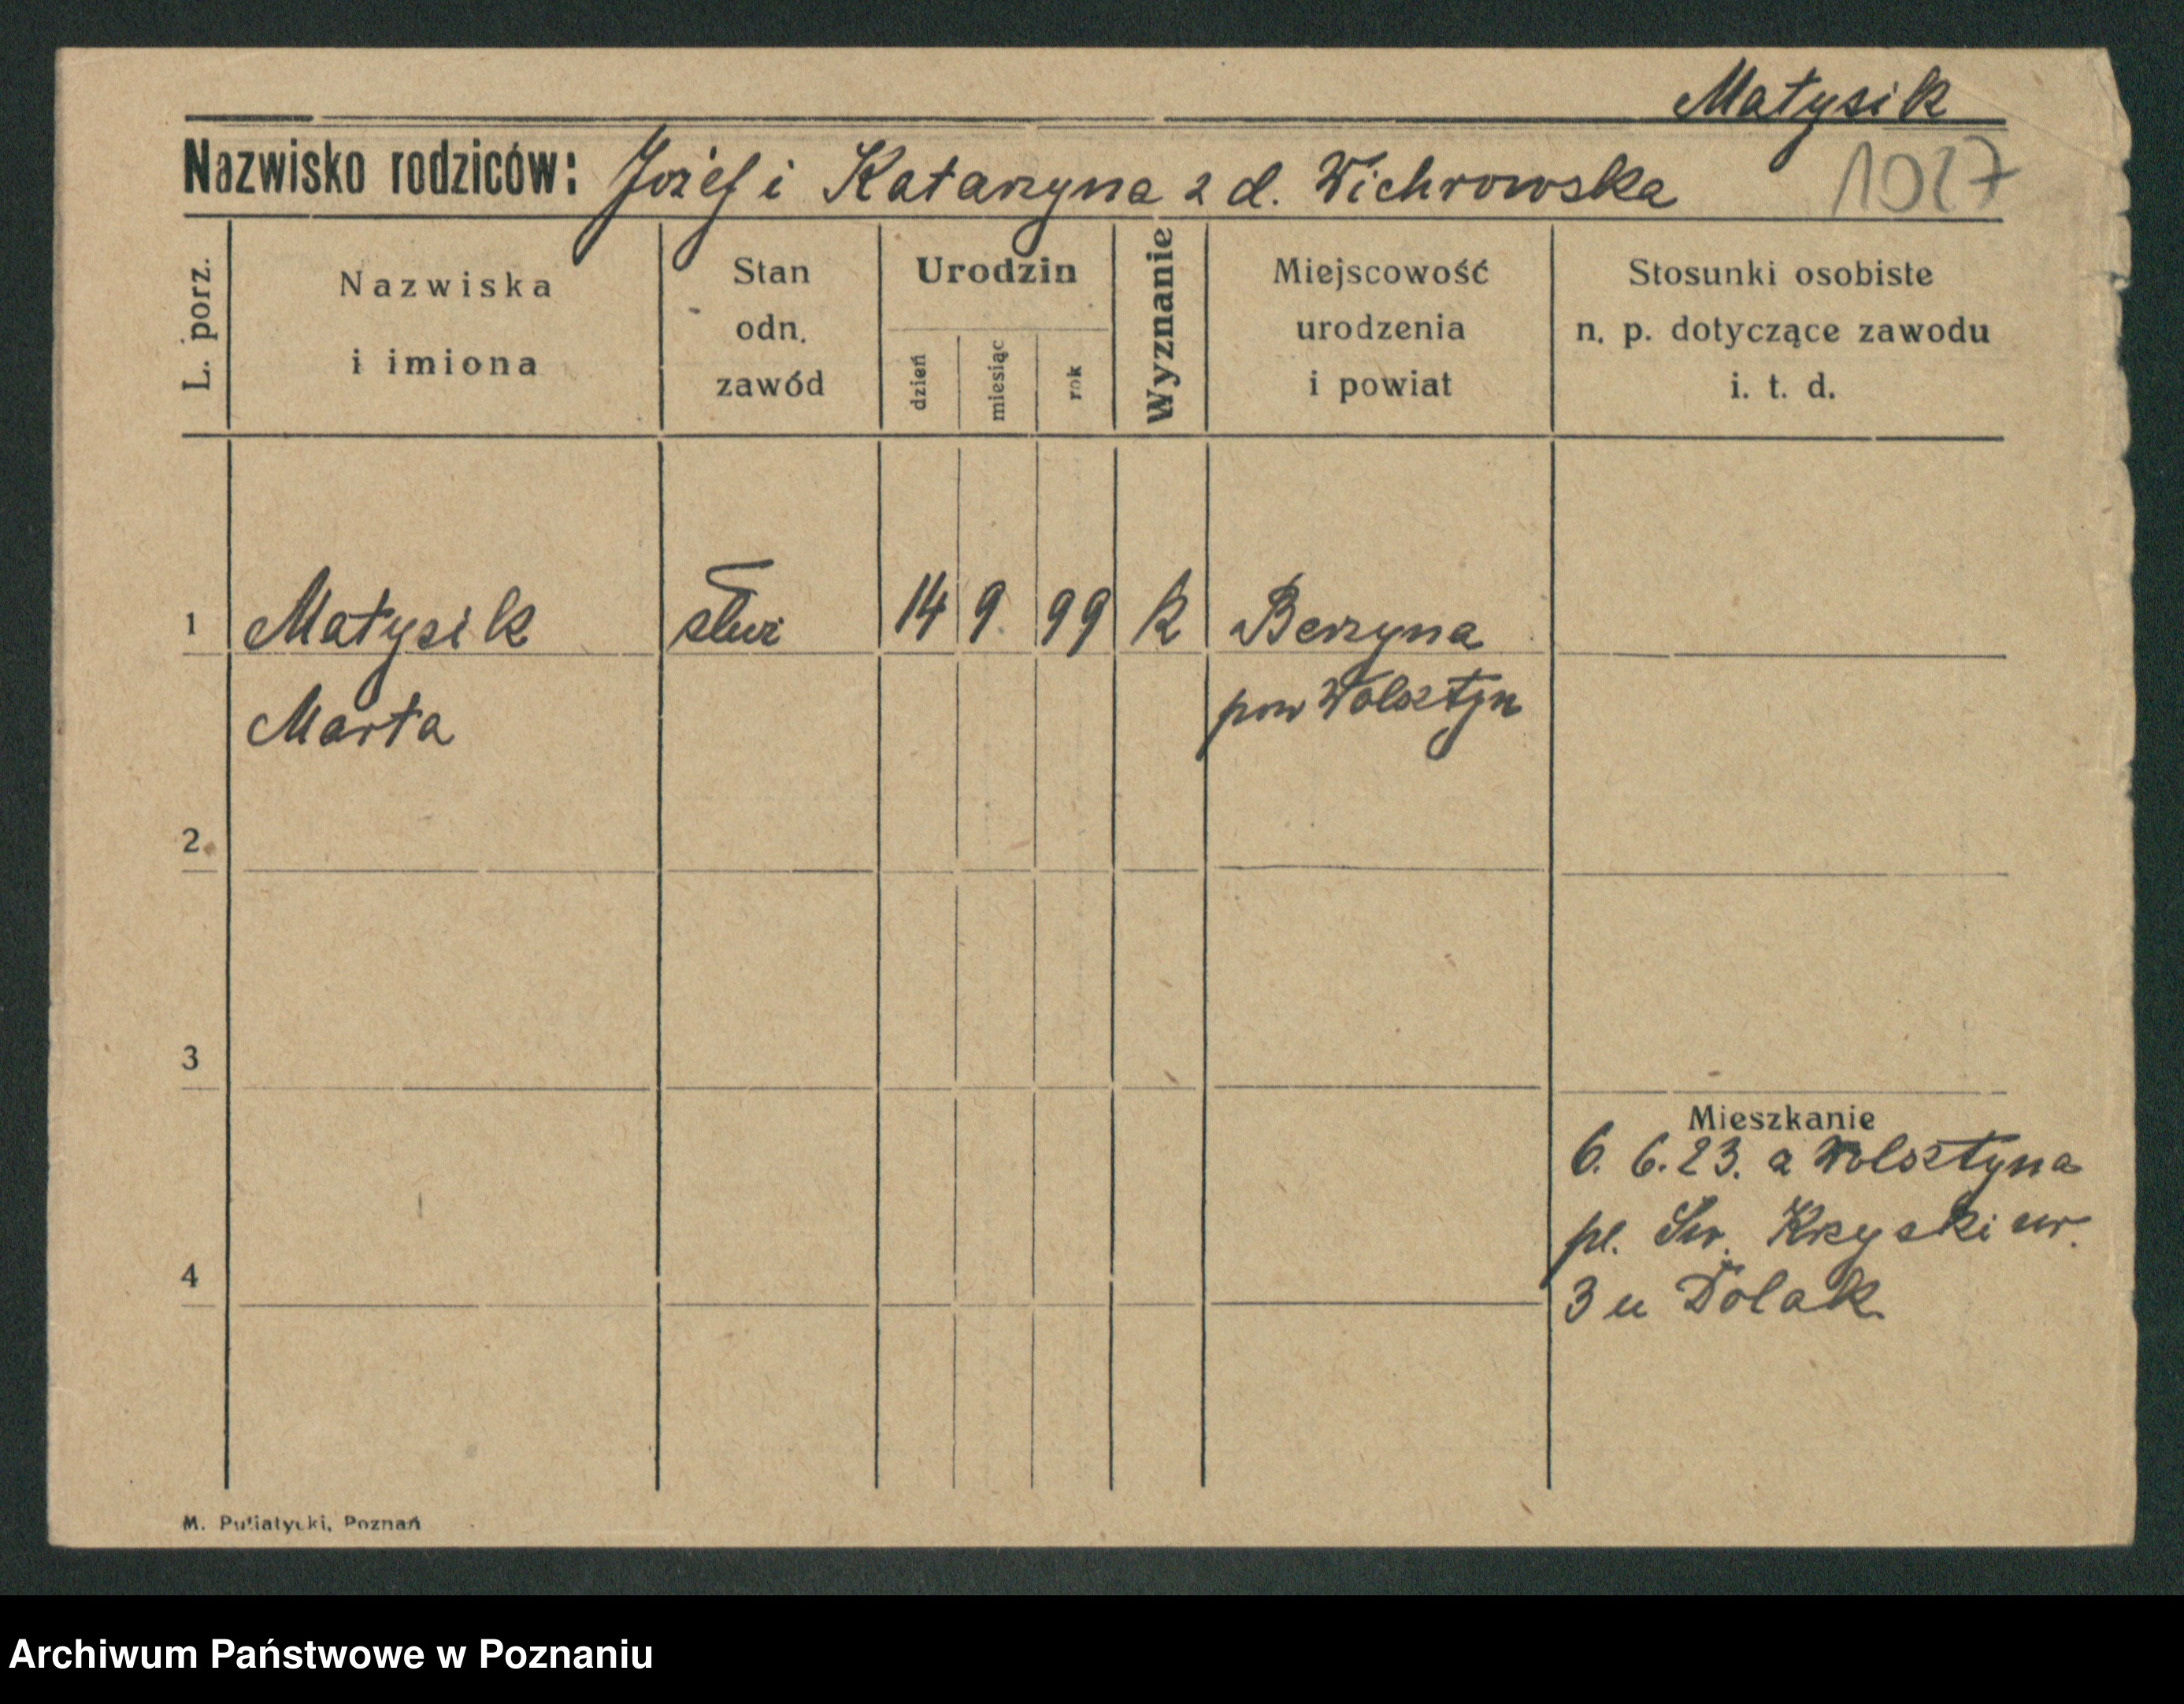 Matysik
Nazwisko rodziców: Józef i Katarzyna z d. Wichrowska
1027
L. porz.
Nazwiska
i imiona
Stan
odn.
zawód
Urodzin
dzień
miesiąc
rok
Wyznanie
Miejscowość
urodzenia
i powiat
Stosunki osobiste
n. p. dotyczące zawodu
i. t. d.
1 Matysik służ 14 9. 99 k Berzyna
Marta pow Wolsztyn
2
3
Mieszkanie
6. 6. 23. z Wolsztyna
pl. Św. Krzyski
4
3 u Dolak
M. Putiatycki, Poznań
Archiwum Państwowe w Poznaniu